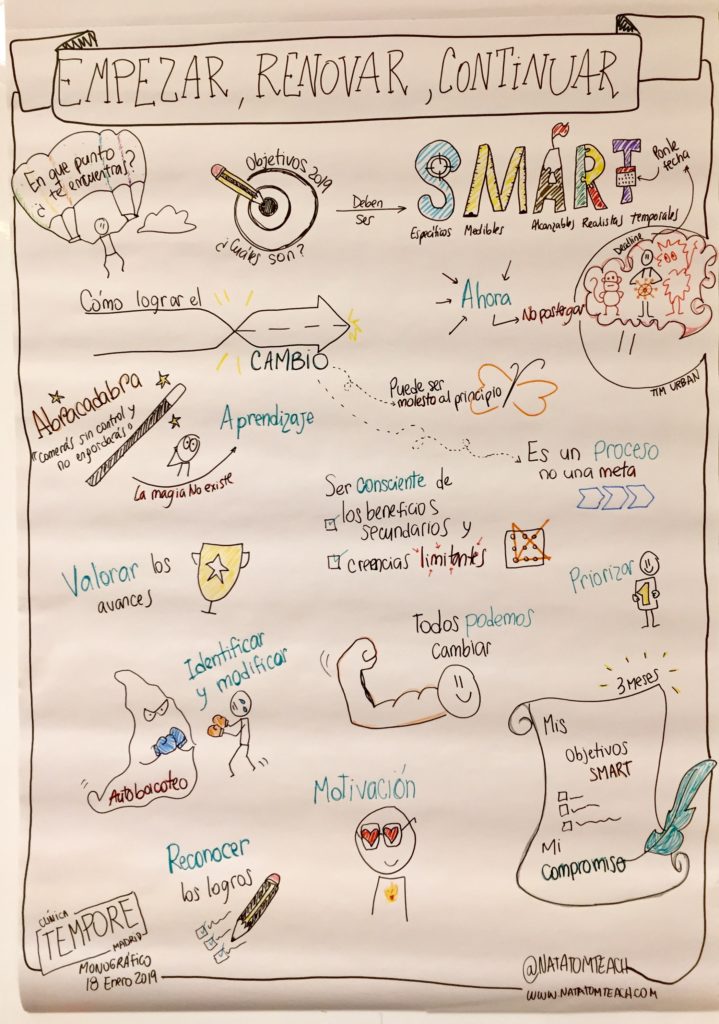 EMPEZAR, RENOVAR, CONTINUAR
En que punto
¿te encuentras?
Objetivos 2019
¿Cuáles son?
Deben
ser
SMART
Ponle
fecha
Específicos Medibles Alcanzables Realistas temporales
Deadline
Cómo lograr el
CAMBIO
Ahora
No postergar
TIM URBAN
Puede ser
molesto al principio
Abracadabra
"Comerás sin control y
no engordarás"
La magia No existe
Aprendizaje
Es un Proceso
no una meta
Ser consciente de
los beneficios
secundarios y
creencias limitantes
Valorar los
avances
Priorizar
1
Todos podemos
cambiar
Identificar
y modificar
Autoboicoteo
3 Meses
Mis
Objetivos
SMART
Mi
compromiso
Motivación
Reconocer
los logros
CLÍNICA
TEMPORE
MADRID
MONOGRÁFICO
18 Enero 2019
@NATATOMTEACH
WWW.NATATOMTEACH.COM